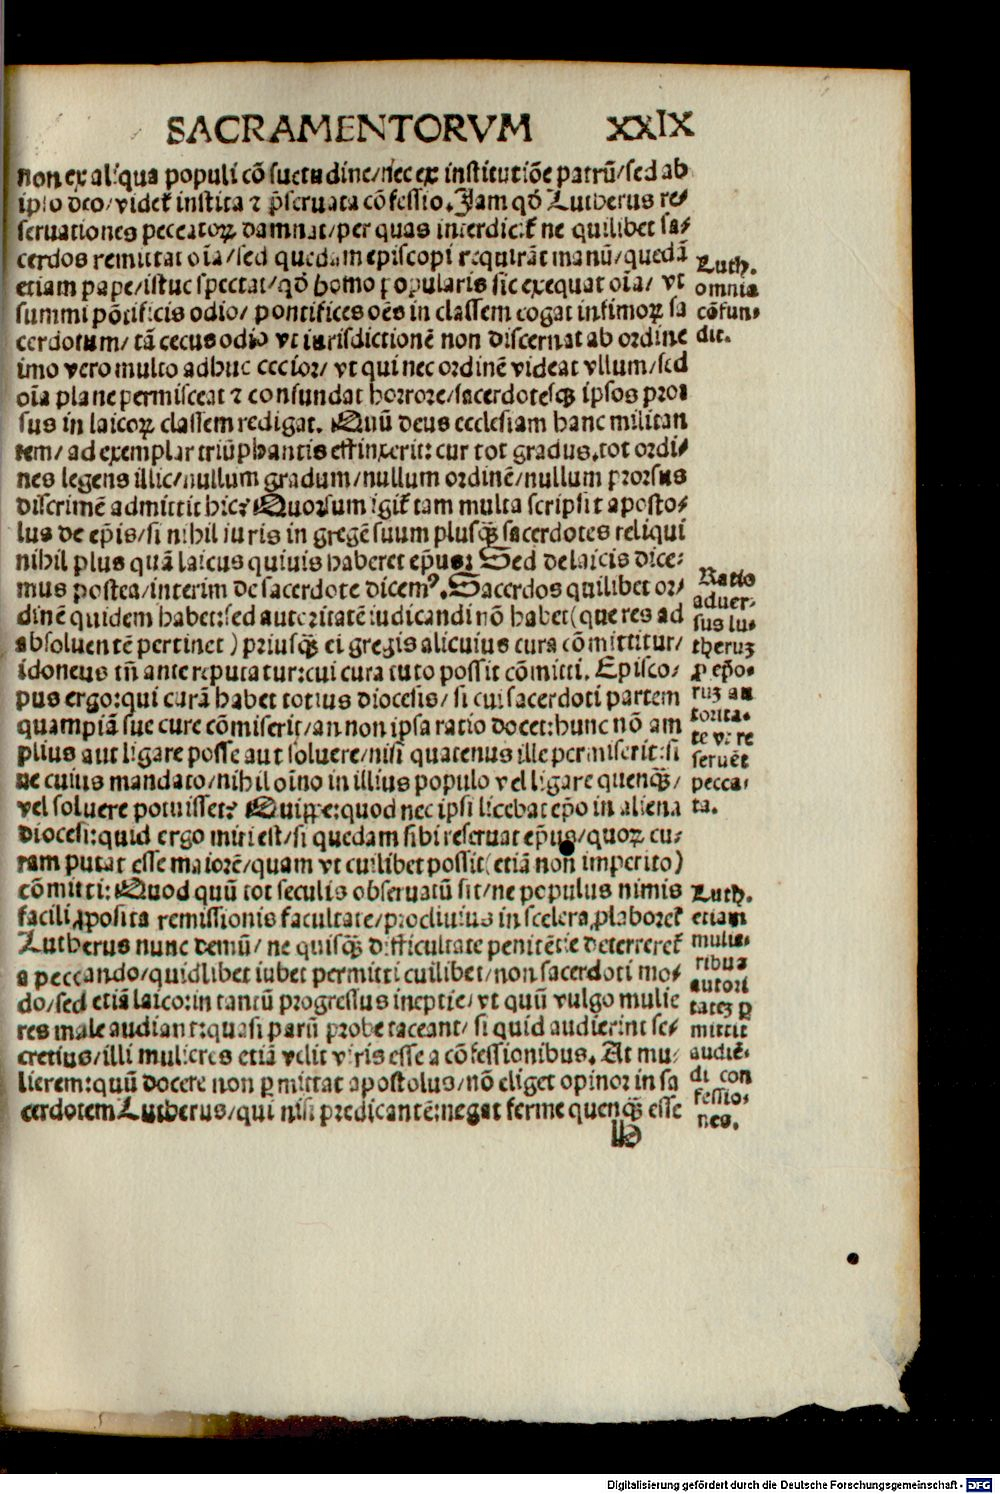 SACRAMENTORVM XXIX
non ex aliqua populi cōsuetudine/nec ex institutiōe patrū/sed ab
ipso deo/videt᷑ instituta ⁊ p̄seruata cōfessio. Jam qđ Lutherus re⸗
seruationes peccatoꝝ damnat/per quas interdicit᷑ ne quilibet sa⸗
cerdos remittat oīa/sed quedam episcopi requirāt manū/quedā
etiam pape/istuc spectat/qđ homo popularis sic exequat oīa/ vt
summi pōtificis odio/ pontifices oēs in classem cogat infimoꝝ sa
cerdotum/ tā cecus odio vt iurisdictionē non discernat ab ordine
imo vero multo adhuc cecior/ vt qui nec ordinē videat vllum/sed
oīa plane permisceat ⁊ confundat horrore/sacerdotesq̄ꝫ ipsos pror
sus in laicoꝝ classem redigat. Quū deus ecclesiam hanc militan
tem/ ad exemplar triūphantis effinxerit: cur tot gradus/tot ordi⸗
nes legens illic/nullum gradum/nullum ordinē/nullum prorsus
discrimē admittit hic? Quorsum igit᷑ tam multa scripsit aposto⸗
lus de ep̄is/si nihil iuris in gregē suum plusq̄ꝫ sacerdotes reliqui
nihil plus quā laicus quiuis haberet ep̄us? Sed de laicis dice⸗
mus postea/interim de sacerdote dicemꝰ. Sacerdos quilibet or/
dinē quidem habet:sed autoritatē iudicandi nō habet(que res ad
absoluentē pertinet) priusq̄ꝫ ei gregis alicuius cura cōmittitur/
idoneus tn̄ ante reputatur:cui cura tuto possit cōmitti. Episco⸗
pus ergo:qui curā habet totius diocesis/ si cui sacerdoti partem
quampiā sue cure cōmiserit/an non ipsa ratio docet:hunc nō am
plius aut ligare posse aut soluere/nisi quatenus ille permiserit:si
ne cuius mandato/nihil oīno in illius populo vel ligare quenq̄ꝫ/
vel soluere potuisset? Quippe:quod nec ipsi licebat ep̄o in aliena
diocesi:quid ergo miri est/si quedam sibi reseruat ep̄us/quoꝝ cu⸗
ram putat esse maiorē/quam vt cuilibet possit(etiā non imperito)
cōmitti: Quod quū tot seculis obseruatū sit/ne populus nimis
facili ꝓposita remissionis facultate/procliuius in scelera ꝓlaboret᷑
Lutherus nunc demū/ ne quisq̄ꝫ difficultate penitētie deterreret᷑
a peccando/quidlibet iubet permitti cuilibet/non sacerdoti mo⸗
do/sed etiā laico:in tantū progressus ineptie/vt quū vulgo mulie
res male audiant:quasi parū probe taceant/ si quid audierint se⸗
cretius/illi mulieres etiā velit viris esse a cōfessionibus. At mu⸗
lierem:quū docere non ꝑmittat apostolus/nō eliget opinor in sa
cerdotem Lutherus/qui nisi predicantē:negat ferme quenq̄ꝫ esse
Luth.
omnia
cōfun⸗
dit.
Ratio
aduer⸗
sus lu⸗
theruꝫ
ꝓ ep̄o⸗
ruꝫ au
torita⸗
te vt re
seruēt
pecca⸗
ta.
Luth.
etiam
mulie⸗
ribus
autori
tateꝫ ꝑ
mittit
audiē⸗
di con
fessio⸗
nes.
Digitalisierung gefördert durch die Deutsche Forschungsgemeinschaft - DFG